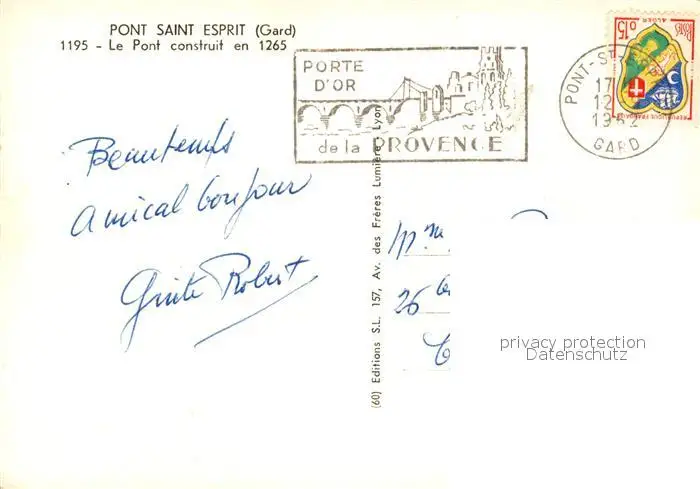 PONT SAINT ESPRIT (Gard)
1195 - Le Pont construit en 1265
PORTE
D'OR
de la PROVENCE
PONT-ST-
17
12
GARD
0,15
POSTES
ALGER
REPUBLIQUE FRANCAISE
Beautemps
Amical bonjour
Robert
(60) Editions S.L. 157, Av. des Frères Lumière, Lyon
Mme
26
privacy protection
Datenschutz